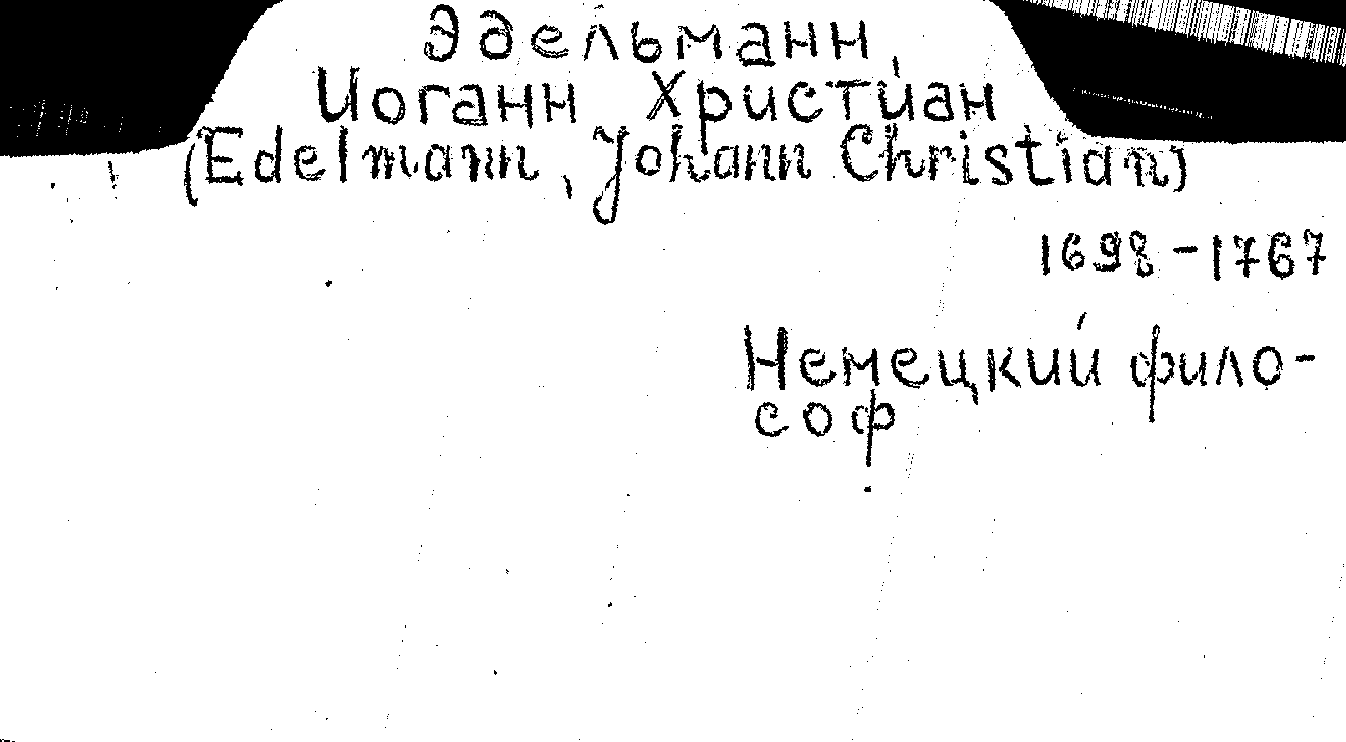 Эдельманн,
Иоганн Христиан
(Edelmann, Johann Christian)
1698-1767
Немецкий фило-
соф